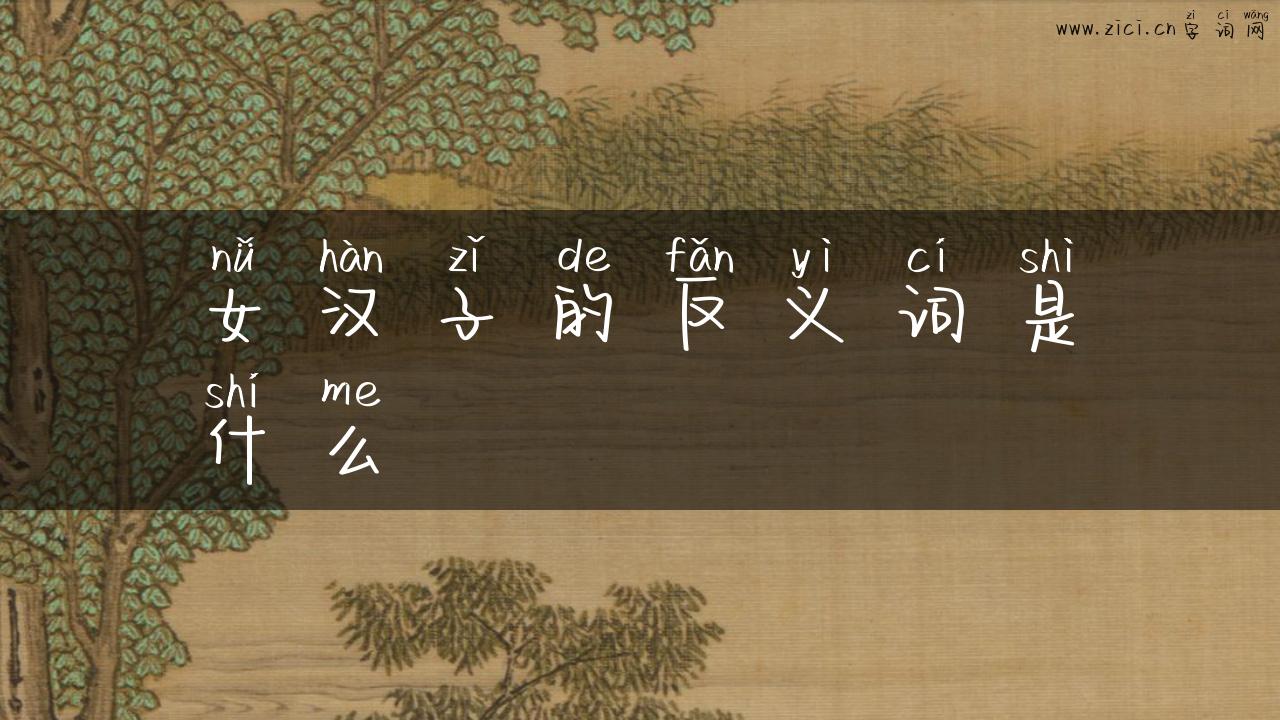 zì cí wǎng
www.zici.cn字词网
nǚ hàn zǐ de fǎn yì cí shì
女汉子的反义词是
shí me
什么